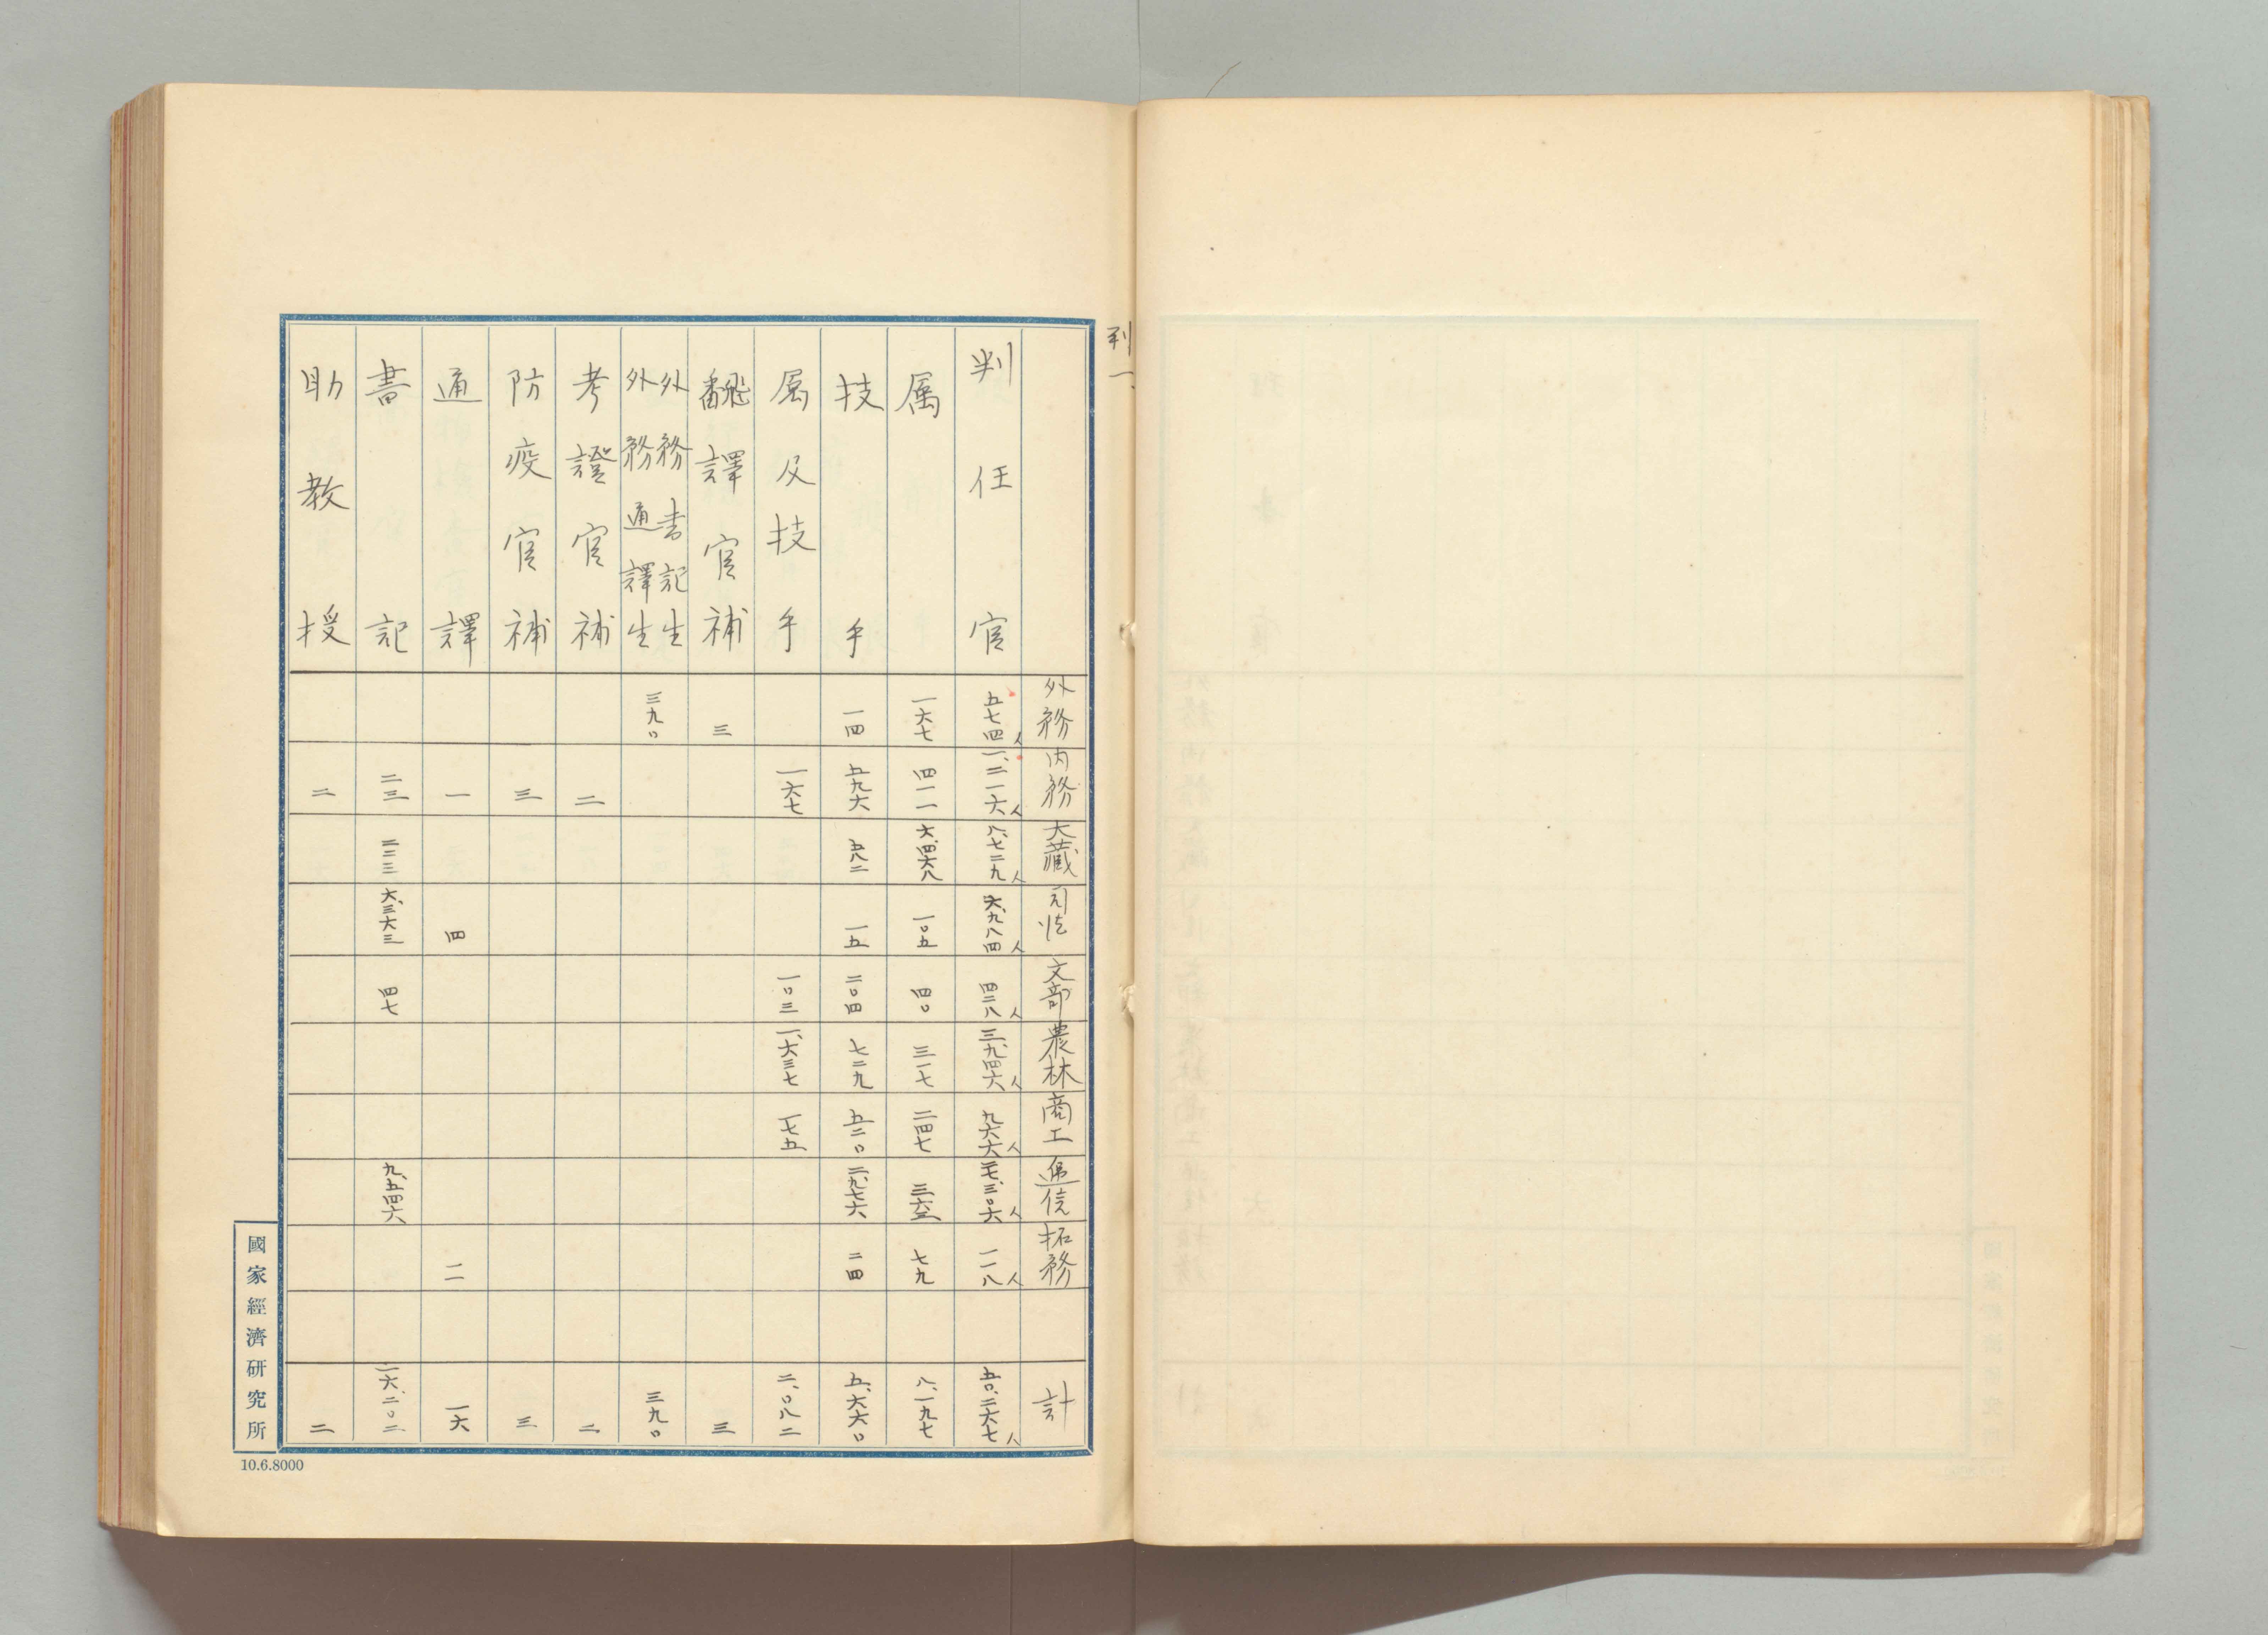 判一、
外務 内務 大藏 司法 文部 農林 商工 逓信 拓務 計
判任官 五七四人 一、二一六人 八、七二九人 六、九八四人 四二八人 三、九四六人 九六六人 二七、三〇六人 一一八人 五〇、二六七人
属 一六七 四一一 六、四六八 一〇五 四〇 三一七 二四七 三六三 七九 八、一九七
技手 一四 五九六 五八二 一五 二〇四 七二九 五二〇 二、九七六 二四 五、六六〇
属及技手 一六七 一〇三 一、六三七 一七五 二、〇八二
飜譯官補 三 三
外務書記生
外務通譯生 三九〇 三九〇
考證官補 二 二
防疫官補 三 三
通譯 一 四 一一 一六
書記 二三 二二三 六、三六三 四七 九、五四六 一六、二〇二
助教授 二 二
國家經濟研究所
10.6.8000